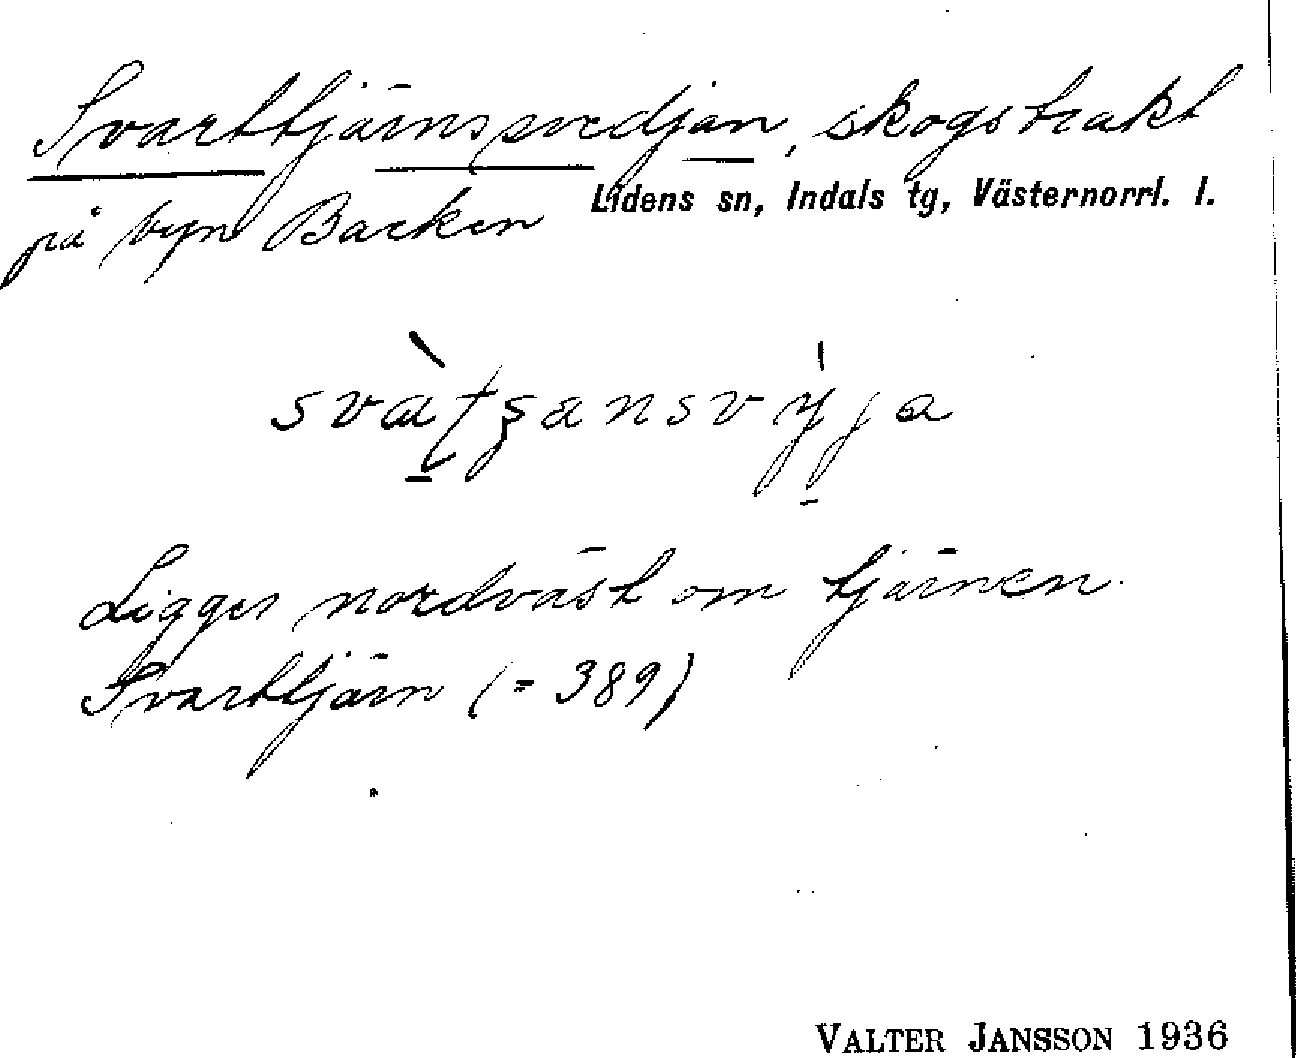 Svarttjärnssvedjan, skogstrakt
Lidens sn, Indals tg, Västernorrl. l.
på byn Backen
svàtʂansvỳja
Ligger nordväst om tjärnen
Svarttjärn (= 389)
VALTER JANSSON 1936